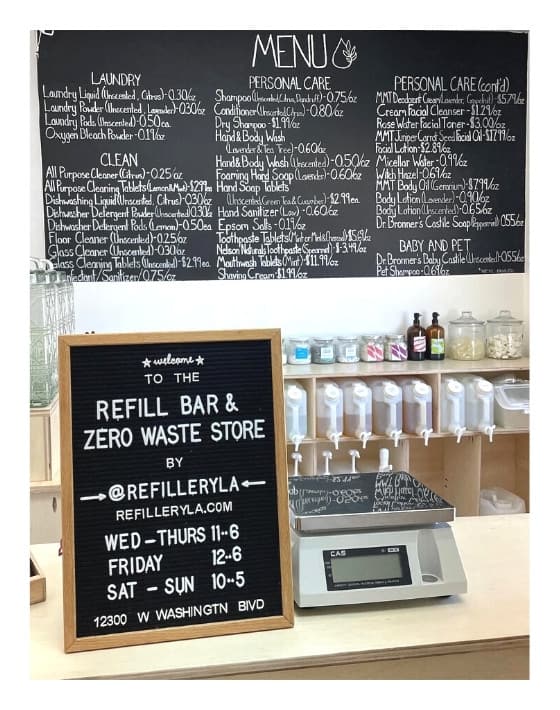 MENU
LAUNDRY
Laundry Liquid (Unscented, Citrus) - 0.30/oz
Laundry Powder (Unscented, Lavender) - 0.30/oz
Laundry Pods (Unscented) - 0.50/ea.
Oxygen Bleach Powder - 0.19/oz
CLEAN
All Purpose Cleaner (Citrus) - 0.25/oz
All Purpose Cleaning Tablets (Lemon & Mint) - $2.99/ea
Dishwashing Liquid (Unscented, Citrus) - 0.30/oz
Dishwasher Detergent Powder (Unscented) 0.30/oz
Dishwasher Detergent Pods (Lemon) - 0.50/ea
Floor Cleaner (Unscented) - 0.25/oz
Glass Cleaner (Unscented) - 0.30/oz
Glass Cleaning Tablets (Unscented) - $2.99 ea.
/Sanitizer/0.75/oz
PERSONAL CARE
Shampoo (Unscented, Citrus, Dandruff) - 0.75/oz
Conditioner (Unscented, Citrus) - 0.80/oz
Dry Shampoo - $1.99/oz
Hand & Body Wash
(Lavender & Tea Tree) - 0.60/oz
Hand & Body Wash (Unscented) - 0.50/oz
Foaming Hand Soap (Lavender) - 0.60/oz
Hand Soap Tablets
(Unscented, Green Tea & Cucumber) - $2.99 ea.
Hand Sanitizer - 0.60/oz
Epsom Salts - 0.19/oz
Toothpaste Tablets
Nelson Naturals Toothpaste (Spearmint) - $3.49/oz
Mouthwash Tablets (Mint) - $11.99/oz
Shaving Cream - $1.99/oz
PERSONAL CARE (cont'd)
MMT Deodorant Cream (Lavender, Grapefruit) - $5.79/oz
Cream Facial Cleanser - $1.29/oz
Rose Water Facial Toner - $3.00/oz
MMT Juniper Carrot Seed Facial Oil - $17.99/oz
Facial Lotion - $2.89/oz
Micellar Water - 0.99/oz
Witch Hazel - 0.69/oz
MMT Body Oil (Geranium) - $7.99/oz
Body Lotion (Lavender) - 0.90/oz
Body Lotion (Unscented) - 0.65/oz
Dr. Bronner's Castile Soap (Peppermint) 0.55/oz
BABY AND PET
Dr. Bronner's Baby Castile (Unscented) - 0.55/oz
Pet Shampoo - 0.69/oz
welcome
TO THE
REFILL BAR &
ZERO WASTE STORE
BY
@REFILLERYLA
REFILLERYLA.COM
WED - THURS 11--6
FRIDAY 12--6
SAT - SUN 10--5
12300 W WASHINGTN BlVD
CAS